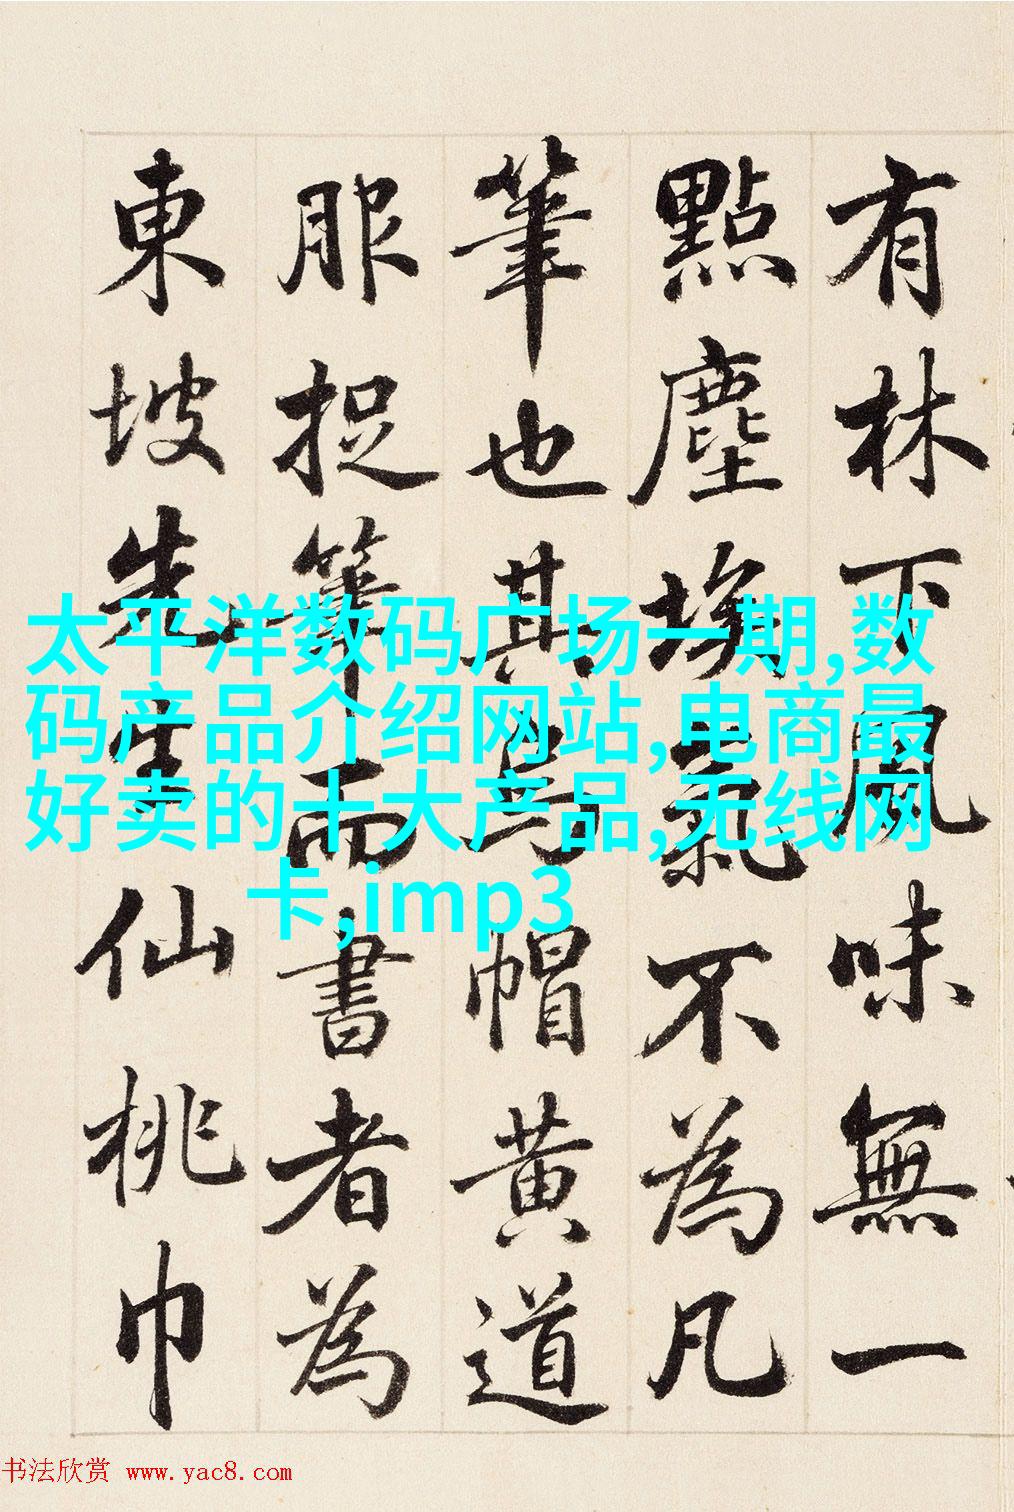 有林下風味無一
點塵埃氣不為凡
筆也其為帽黄道
服捉筆而書者為
東坡先生仙桃巾
太平洋数码广场一期,数
码产品介绍网站,电商最
好卖的十大产品,无线网
卡,imp3
书法欣赏 www.yac8.com